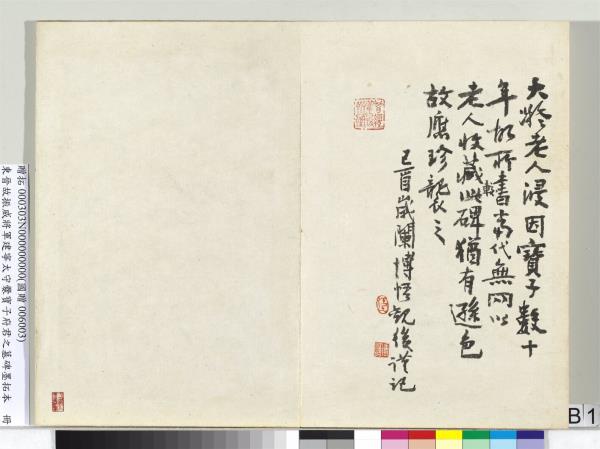 老人浸因寶子數十
年故所書當代無兩以
較
老人收藏此碑猶有遜色
故應珍襲之
己酉歲闌博悟觀後謹記
贈拓 000303N000000000(國贈 006003)
東晉故振威將軍建寧太守爨寶子府君之墓碑墨拓本 冊
B 1